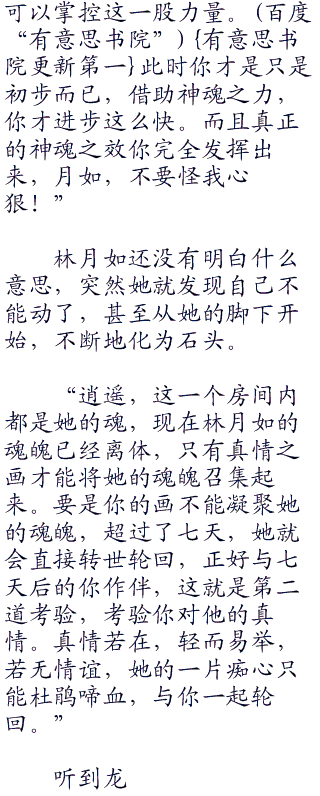 可以掌控这一股力量。(百度
“有意思书院”){有意思书
院更新第一}此时你才是只是
初步而已，借助神魂之力，
你才进步这么快。而且真正
的神魂之效你完全发挥出
来，月如，不要怪我心
狠！”
林月如还没有明白什么
意思，突然她就发现自己不
能动了，甚至从她的脚下开
始，不断地化为石头。
“逍遥，这一个房间内
都是她的魂，现在林月如的
魂魄已经离体，只有真情之
画才能将她的魂魄召集起
来。要是你的画不能凝聚她
的魂魄，超过了七天，她就
会直接转世轮回，正好与七
天后的你作伴，这就是第二
道考验，考验你对他的真
情。真情若在，轻而易举，
若无情谊，她的一片痴心只
能杜鹃啼血，与你一起轮
回。”
听到龙